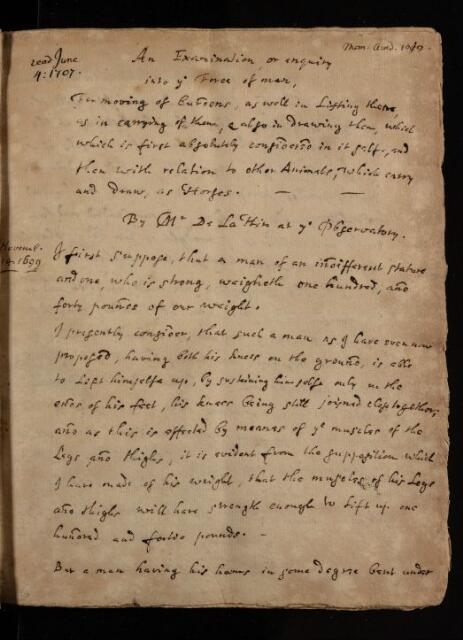 read June
4: 1707.
An Examination or enquiry
into yᵉ Force of man,
For moving of burdens, as well in Lifting them,
as in carrying of them, & also in drawing them, which
which is first absolutely considered in it self, and
then with relation to other Animals, which carry
and draw, as Horses. — —
By Mʳ De La Hire at yᵉ Observatory.
Novemb.
14. 1699
I first suppose, that a man of an indifferent stature
and one, who is strong, weigheth one hundred, and
forty pounds of our weight.
I presently consider, that such a man as I have even now
proposed, having both his knees on the ground, is able
to Lift himselfe up, by sustaining himselfe only on the
ends of his feet, his knees being still joined close together,
and as this is effected by meanes of yᵉ muscles of the
Legs and thighs, it is evident from the supposition which
I have made of his weight, that the muscles of his Legs
and thighs will have strength enough to lift up one
hundred and fortie pounds. —
But a man having his hams in some degree bent under